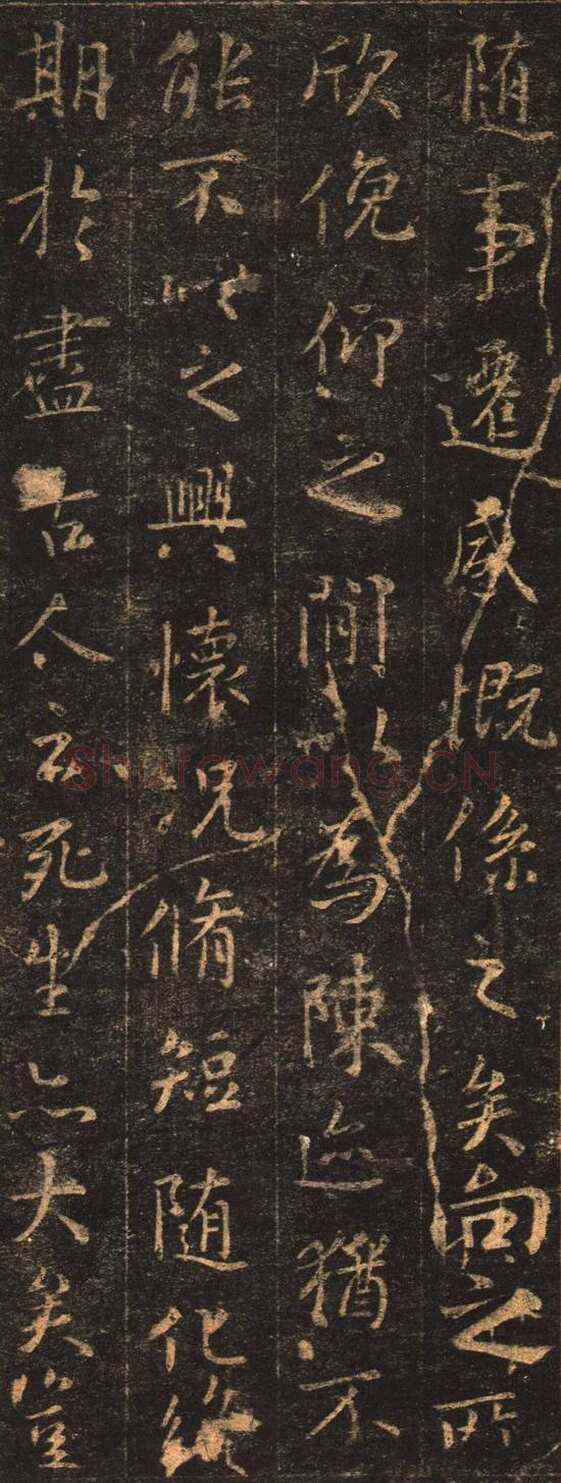 隨事遷感慨係之矣向之所
欣俛仰之間以為陳迹猶不
能不以之興懷況脩短隨化終
期於盡古人云死生亦大矣豈
Shufawang.CN